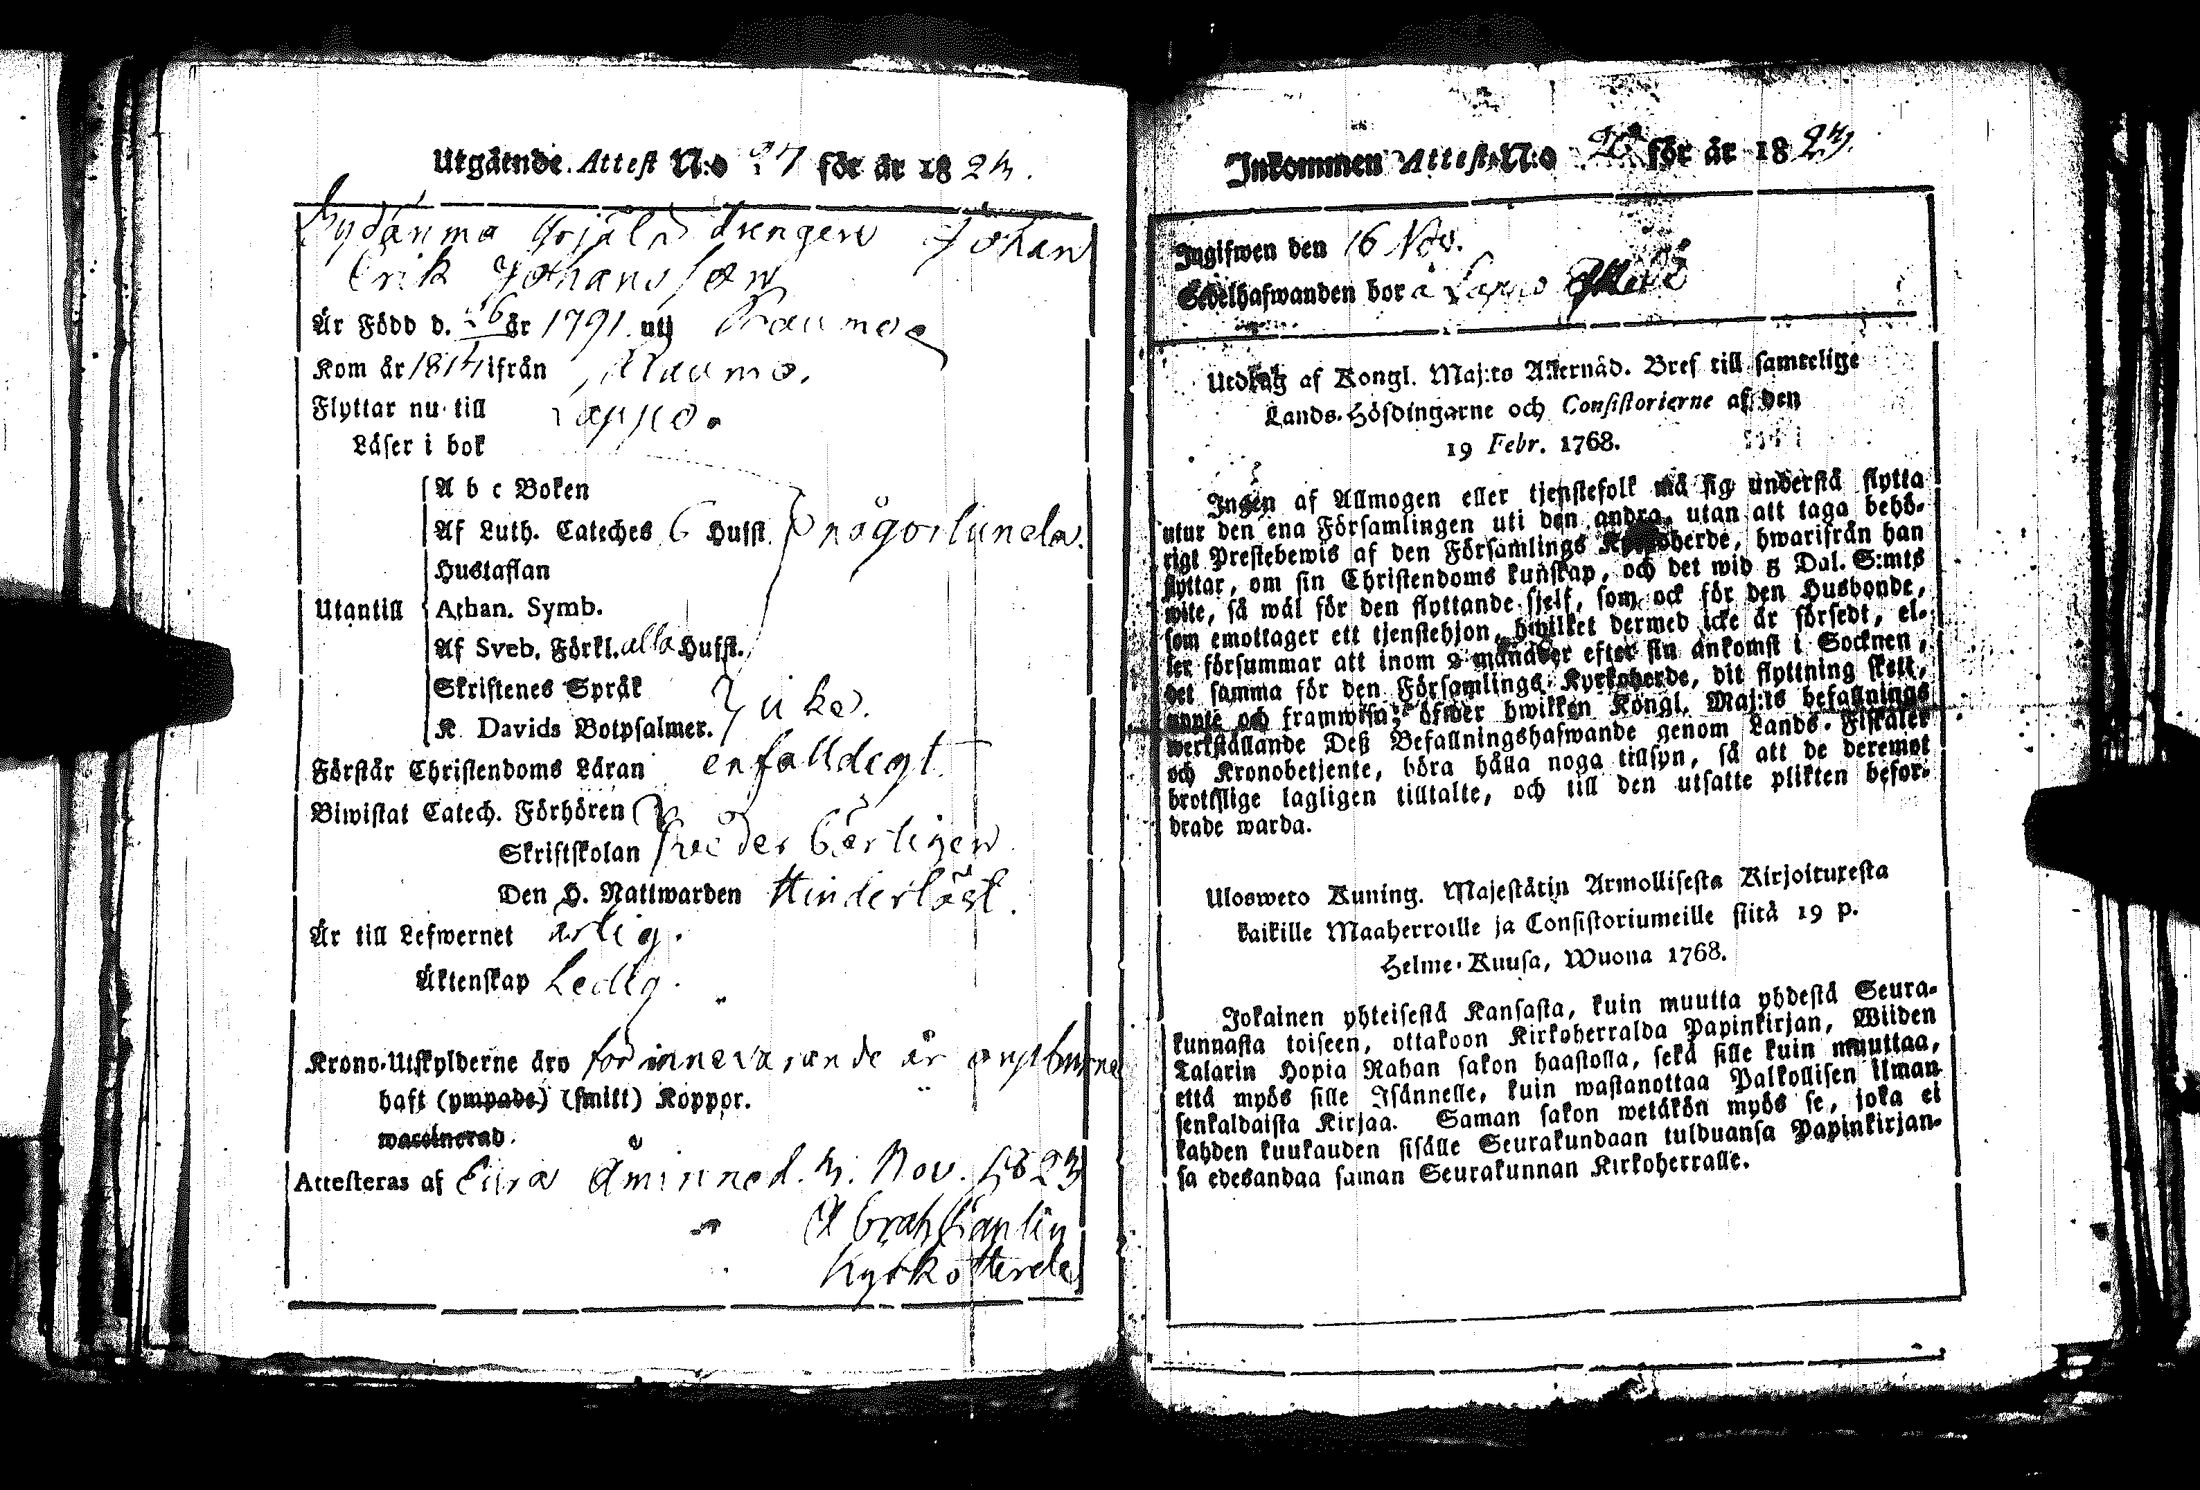 Utgående Attest N:o 27 för år 1823.
Sydänma Grjäls drengen Johan
Erik Johansson
Är Född d. 16 år 1791 uti Raumo
Kom år 1814 ifrån Raumo.
Flyttar nu till Lappo.
Läser i bok
A b c Boken
Af Luth. Cateches 6 Hufst. någorlunda.
Hustaflan
Utantill
Athan. Symb.
Af Sveb. Förkl. alla Hufst.
Skriftenes Språk
K. Davids Botpsalmer. icke.
Förstår Christendoms Läran enfalldigt
Biwistat Catech. Förhören
Skriftskolan
Den H. Nattwarden Hinderlöst.
Är till Lefwernet ärlig.
Äktenskap Ledig.
Krono-Utskylderne äro för innevarande år
haft (ympade) (smitt) Koppor.
waccinerad.
Attesteras af Eura d. 3. Nov. 1823
Abrah
Kyrkoherde
Inkommen Attest N:o 20 för år 1823.
Ingifwen den 16 Nov.
Sedelhafwanden bor å Lappo
Utdrag af Kongl. Maj:ts Allernåd. Bref till samtelige
Lands-Höfdingarne och Consistorierne af den
19 Febr. 1768.
Ingen af Allmogen eller tjenstefolk må sig understå flytta
utur den ena Församlingen uti den andra, utan att taga behö-
rigt Prestebewis af den Församlings Kyrkoherde, hwarifrån han
flyttar, om sin Christendoms kunskap, och det wid 5 Dal. S:mts
wite, så wäl för den flyttande sjelf, som ock för den Husbonde,
som emottager ett tjenstehjon, hwilket dermed icke är försedt, el-
ler försummar att inom 2 månader efter sin ankomst i Socknen,
det samma för den Församlings Kyrkoherde, dit flyttning skett,
uppte och framwisa; öfwer hwilken Kongl. Maj:ts befallnings
werkställande Deß Befallningshafwande genom Lands-Fiskaler
och Kronobetjente, böra hålla noga tillsyn, så att de deremot
brottslige lagligen tilltalte, och till den utsatte plikten befor-
drade warda.
Ulosweto Kuning. Majestätin Armollisesta Kirjoituxesta
kaikille Maaherroille ja Consistoriumeille siitä 19 p.
Helme-Kuusa, Wuona 1768.
Jokainen yhteisestä Kansasta, kuin muutta yhdestä Seura-
kunnasta toiseen, ottakoon Kirkoherralda Papinkirjan, Wiiden
Talarin Hopia Rahan sakon haastolla, sekä sille kuin muuttaa,
että myös sille Isännelle, kuin wastanottaa Palkollisen ilman
senkaldaista Kirjaa. Saman sakon wetäkön myös se, joka ei
kahden kuukauden sisälle Seurakundaan tulduansa Papinkirjan-
sa edesandaa saman Seurakunnan Kirkoherralle.